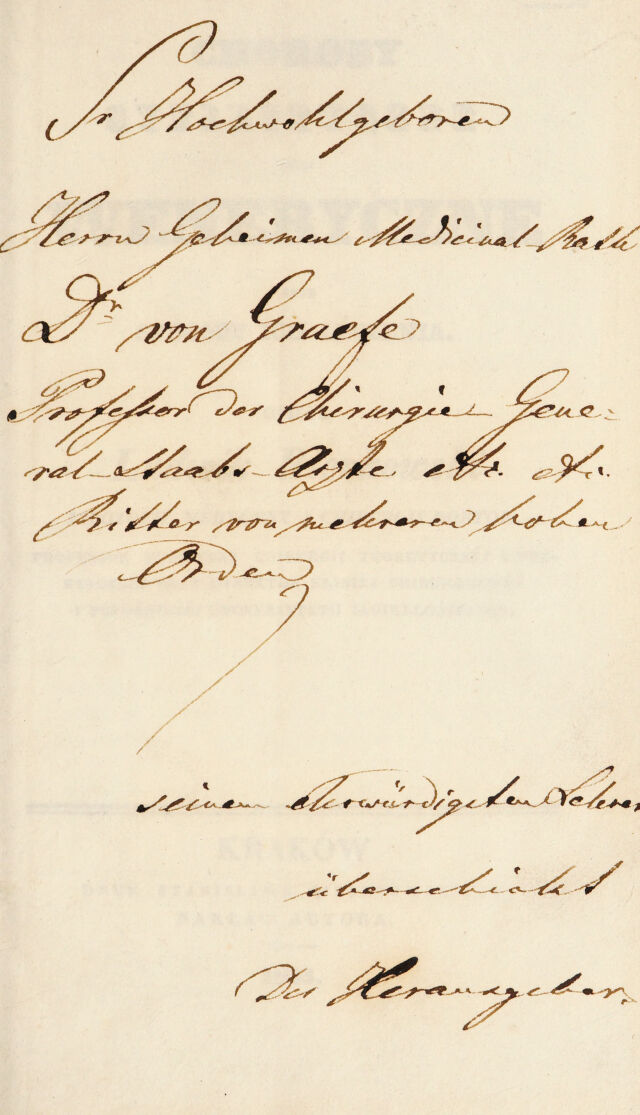 Sr Hochwohlgeboren
Herrn Geheimen Medicinal-Rath
Dr von Graefe
Professor der Chirurgie Gene-
ral-Staabs-Arzte etc. etc.
Ritter von mehreren hohen
Orden
seinem ehrwürdigsten Lehrer
überschickt
Der Herausgeber.